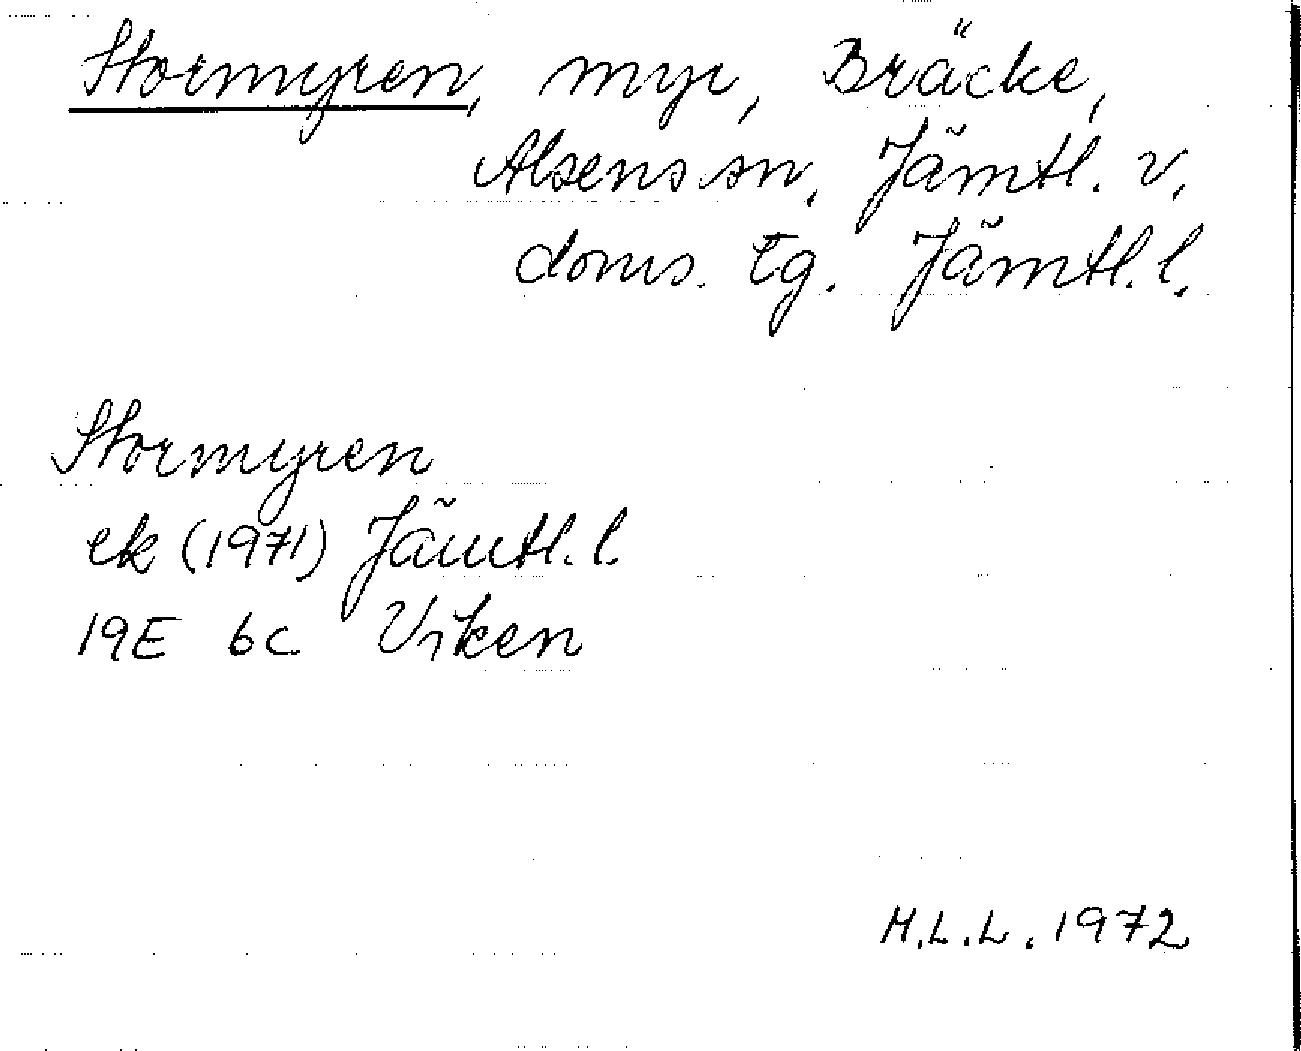 Stormyren, myr, Bräcke,
Alsens sn, Jämtl. v.
doms. tg. Jämtl. l.
Stormyren
ek (1971) Jämtl. l.
19E 6c Viken
M.L.L. 1972